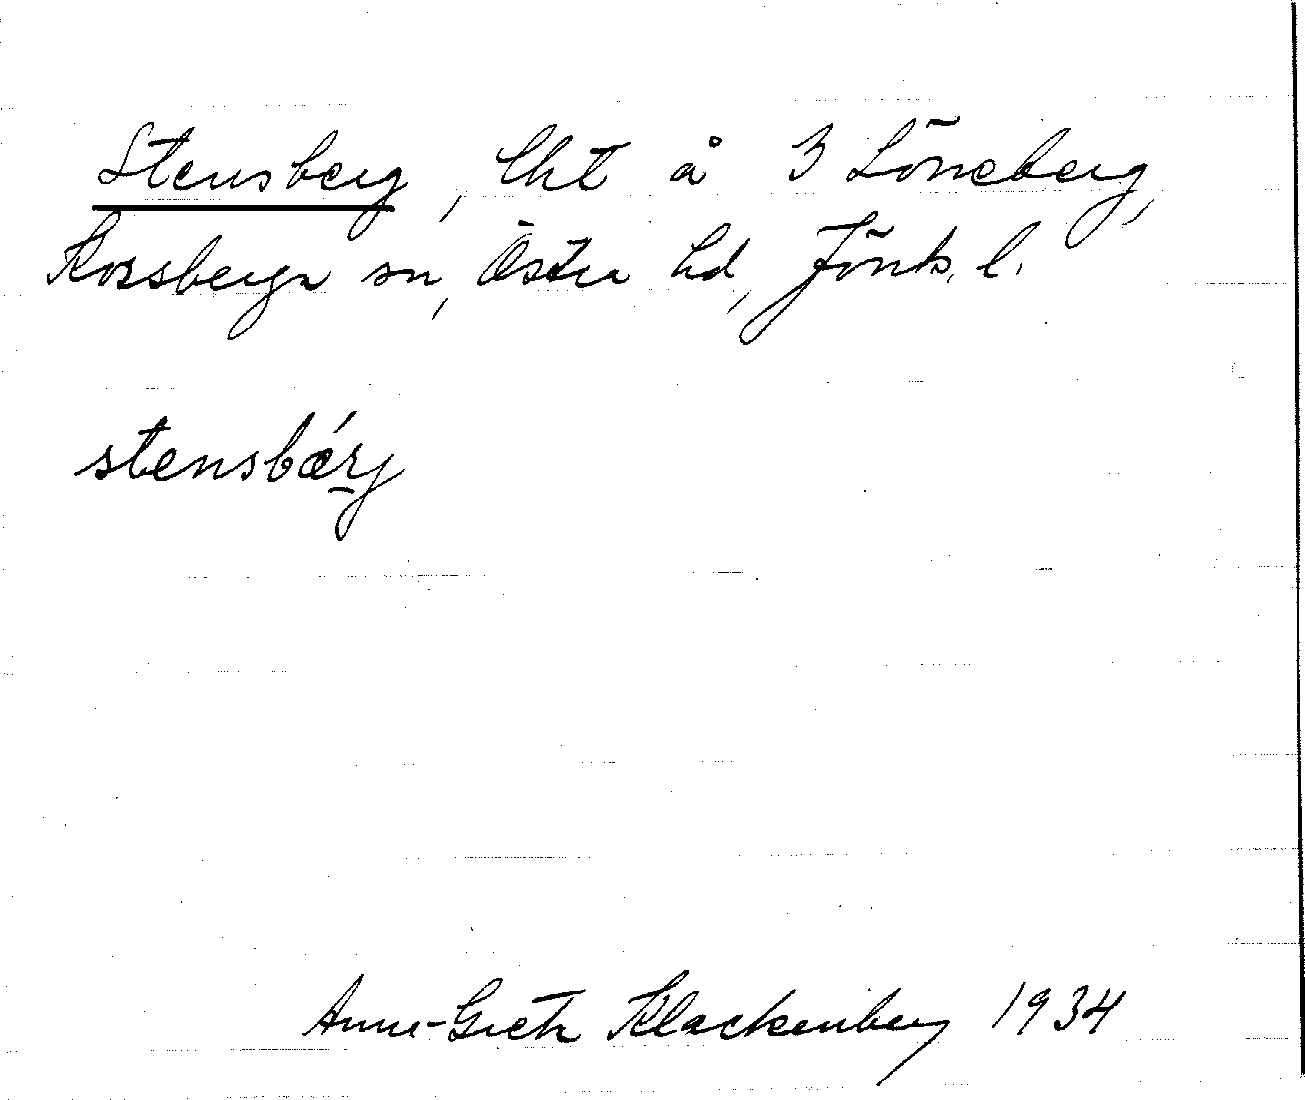 Stensberg, lht å 3 Löneberg,
Korsberga sn, Östra hd, Jönk. l.
stensbǽrj
Anna-Greta Klackenberg 1934